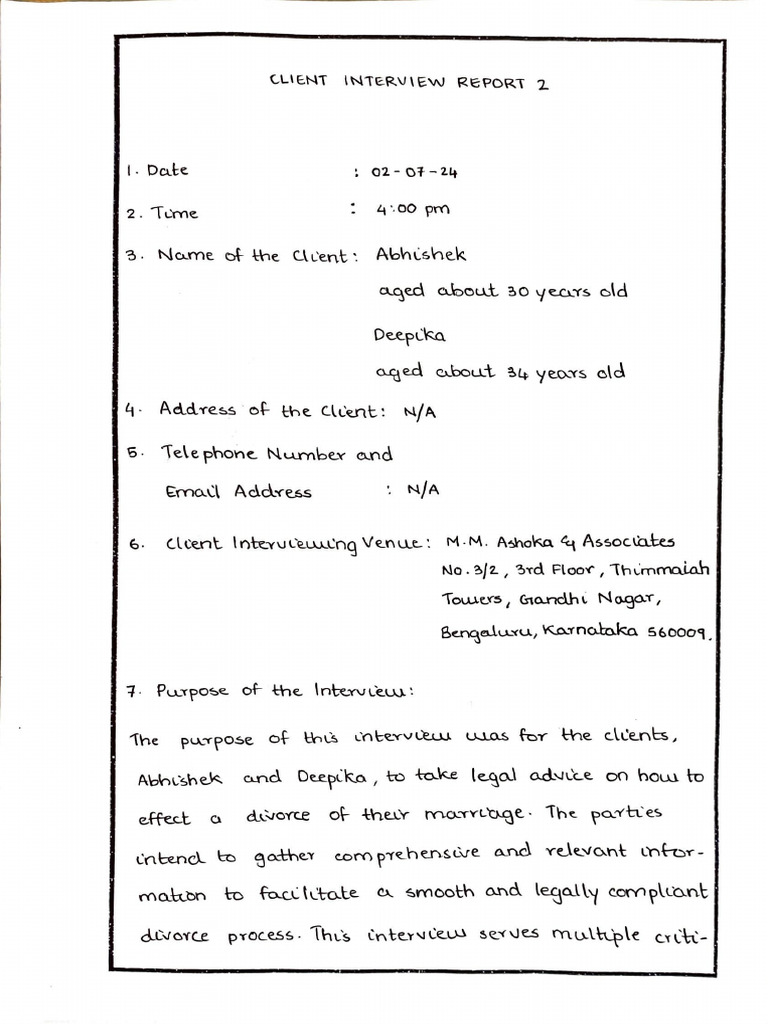 CLIENT INTERVIEW REPORT 2
1. Date : 02-07-24
2. Time : 4:00 pm
3. Name of the Client: Abhishek
aged about 30 years old
Deepika
aged about 34 years old
4. Address of the Client: N/A
5. Telephone Number and
Email Address : N/A
6. Client Interviewing Venue: M.M. Ashoka & Associates
No. 3/2, 3rd Floor, Thimmaiah
Towers, Gandhi Nagar,
Bengaluru, Karnataka 560009.
7. Purpose of the Interview:
The purpose of this interview was for the clients,
Abhishek and Deepika, to take legal advice on how to
effect a divorce of their marriage. The parties
intend to gather comprehensive and relevant infor-
mation to facilitate a smooth and legally compliant
divorce process. This interview serves multiple criti-